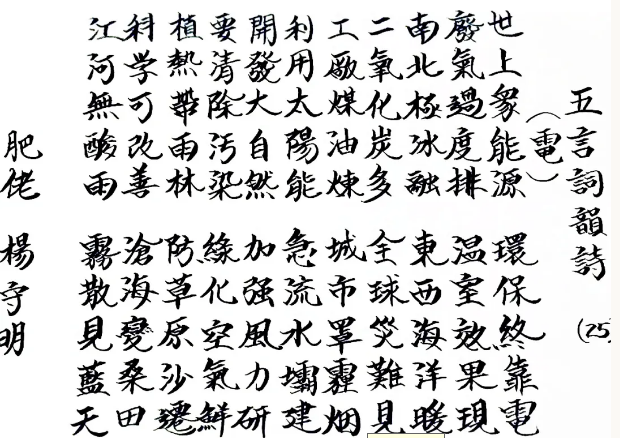 五言詞韻詩 (25)
(電)
世上眾能源 環保終靠電
廢氣過度排 温室效果現
南北極冰融 東西海洋暖
二氧化炭多 全球災難見
工厰煤油煉 城市罩霾烟
利用太陽能 急流水壩建
開發大自然 加强風力研
要清除污染 綠化空氣鮮
植熱帶雨林 防草原沙遷
科学可改善 滄海變桑田
江河無酸雨 霧散見藍天
肥佬 楊守明